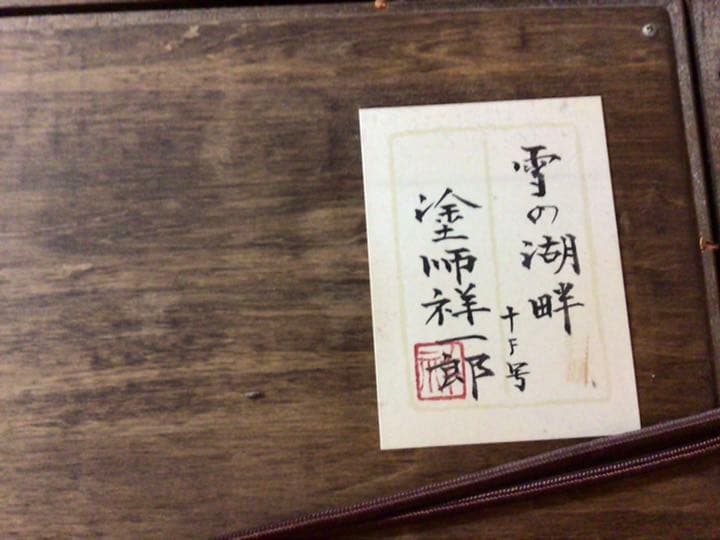 雪の湖畔
十F号
塗師祥一郎